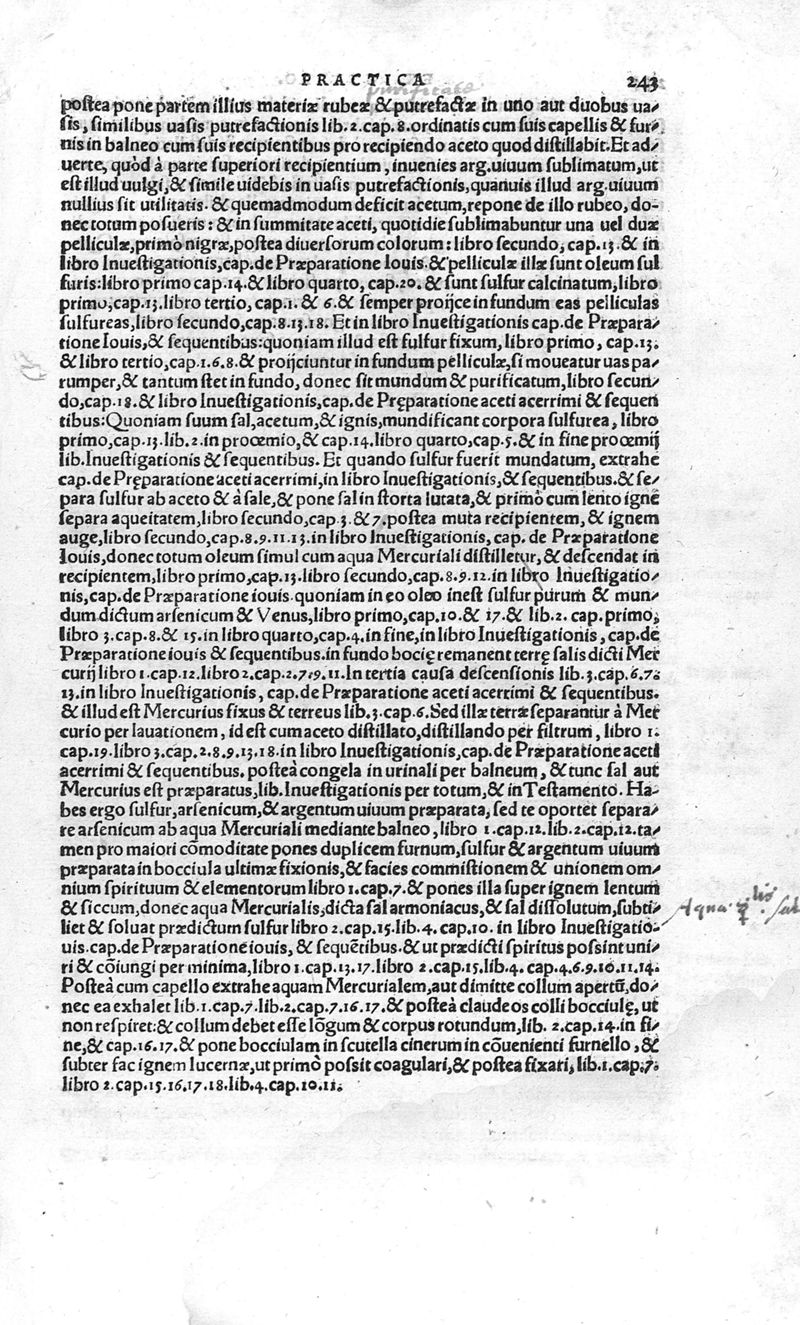 PRACTICA 243
poſtea pone partem illius materiæ rubeæ & putrefactæ in uno aut duobus ua⸗
ſis, ſimilibus uaſis putrefactionis lib.2.cap.8.ordinatis cum ſuis capellis & fur⸗
nis in balneo cum ſuis recipientibus pro recipiendo aceto quod diſtillabit. Et ad⸗
uerte, quòd à parte ſuperiori recipientium, inuenies arg.uiuum ſublimatum, ut
eſt illud uulgi, & ſimile uidebis in uaſis putrefactionis, quanuis illud arg.uiuum
nullius ſit utilitatis. & quemadmodum deficit acetum, repone de illo rubeo, do⸗
nec totum poſueris: & in ſummitate aceti, quotidie ſublimabuntur una uel duæ
pelliculæ, primò nigræ, poſtea diuerſorum colorum: libro ſecundo, cap.13.& in
libro Inueſtigationis, cap.de Præparatione Iouis.& pelliculæ illæ ſunt oleum ſul
furis: libro primo cap.14.& libro quarto, cap.20.& ſunt ſulfur calcinatum, libro
primo, cap.13.libro tertio, cap.1.& 6.& ſemper proijce in fundum eas pelliculas
ſulfureas, libro ſecundo, cap.8.13.18. Et in libro Inueſtigationis cap.de Præpara⸗
tione Iouis, & ſequentibus: quoniam illud eſt ſulfur fixum, libro primo, cap.13.
& libro tertio, cap.1.6.8.& proijciuntur in fundum pelliculæ, ſi moueatur uas pa⸗
rumper, & tantum ſtet in fundo, donec ſit mundum & purificatum, libro ſecun⸗
do, cap.18.& libro Inueſtigationis, cap.de Pręparatione aceti acerrimi & ſequen
tibus: Quoniam ſuum ſal, acetum, & ignis, mundificant corpora ſulfurea, libro
primo, cap.13.lib.2.in proœmio, & cap.14.libro quarto, cap.5.& in fine proœmij
lib.Inueſtigationis & ſequentibus. Et quando ſulfur fuerit mundatum, extrahe
cap.de Pręparatione aceti acerrimi, in libro Inueſtigationis, & ſequentibus.& ſe⸗
para ſulfur ab aceto & à ſale, & pone ſal in ſtorta lutata, & primò cum lento igne
ſepara aqueitatem, libro ſecundo, cap.3.& 7.poſtea muta recipientem, & ignem
auge, libro ſecundo, cap.8.9.11.13.in libro Inueſtigationis, cap. de Præparatione
Iouis, donec totum oleum ſimul cum aqua Mercuriali diſtilletur, & deſcendat in
recipientem, libro primo, cap.13.libro ſecundo, cap.8.9.12.in libro Inueſtigatio⸗
nis, cap.de Præparatione iouis.quoniam in eo oleo ineſt ſulfur purum & mun⸗
dum dictum arſenicum & Venus, libro primo, cap.10.& 17.& lib.2. cap.primo,
libro 3.cap.8.& 15.in libro quarto, cap.4.in fine, in libro Inueſtigationis, cap.de
Præparatione iouis & ſequentibus.in fundo bocię remanent terrę ſalis dicti Mer
curij libro 1.cap.12.libro 2.cap.2.7.9.11.In tertia cauſa deſcenſionis lib.3.cap.6.7.
13.in libro Inueſtigationis, cap.de Præparatione aceti acerrimi & ſequentibus.
& illud eſt Mercurius fixus & terreus lib.3.cap.6.Sed illæ terræ ſeparantur à Mer
curio per lauationem, id eſt cum aceto diſtillato, diſtillando per filtrum, libro 1.
cap.19.libro 3.cap.2.8.9.13.18.in libro Inueſtigationis, cap.de Præparatione aceti
acerrimi & ſequentibus. poſteà congela in urinali per balneum, & tunc ſal aut
Mercurius eſt præparatus, lib.Inueſtigationis per totum, & in Teſtamento. Ha⸗
bes ergo ſulfur, arſenicum, & argentum uiuum præparata, ſed te oportet ſepara⸗
re arſenicum ab aqua Mercuriali mediante balneo, libro 1.cap.12.lib.2.cap.12.ta⸗
men pro maiori cōmoditate pones duplicem furnum, ſulfur & argentum uiuum
præparata in bocciula ultimæ fixionis, & facies commiſtionem & unionem om⸗
nium ſpirituum & elementorum libro 1.cap.7.& pones illa ſuper ignem lentum
& ſiccum, donec aqua Mercurialis, dicta ſal armoniacus, & ſal diſſolutum, ſubti⸗
liet & ſoluat prædictum ſulfur libro 2.cap.15.lib.4. cap.10. in libro Inueſtigatio⸗
uis.cap.de Præparatione iouis, & ſequētibus.& ut prædicti ſpiritus poſſint uni⸗
ri & cōiungi per minima, libro 1.cap.13.17.libro 2.cap.15.lib.4. cap.4.6.9.10.11.14.
Poſteà cum capello extrahe aquam Mercurialem, aut dimitte collum apertū, do⸗
nec ea exhalet lib.1.cap.7.lib.2.cap.7.16.17.& poſteà claude os colli bocciulę, ut
non reſpiret: & collum debet eſſe lōgum & corpus rotundum, lib. 2.cap.14.in fi⸗
ne, & cap.16.17.& pone bocciulam in ſcutella cinerum in cōuenienti furnello, &
ſubter fac ignem lucernæ, ut primò poſsit coagulari, & poſtea fixari, lib.1.cap.7.
libro 2.cap.15.16.17.18.lib.4.cap.10.11.
Aqua